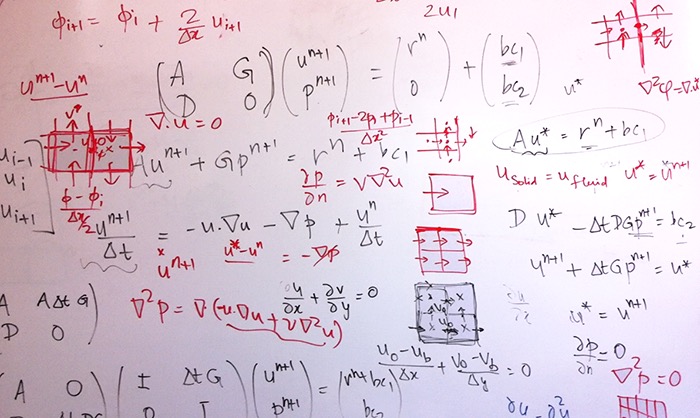 ϕi+1 = ϕi + 2/Δx ui+1
2u1
u^n+1 − u^n
(A G; D 0) (u^n+1; p^n+1) = (r^n; 0) + (bc1; bc2)
u*
∇²φ = ∇·u*
v*
∇·u = 0
ϕi+1 − 2ϕi + ϕi−1 / Δx²
Au* = r^n + bc1
ui−1
ui
ui+1
Au^n+1 + Gp^n+1 = r^n + bc1
∂p/∂n = ν∇²u
usolid = ufluid u* = u^n+1
ϕ − ϕi / Δx/2
u^n+1/Δt = −u·∇u − ∇p + u^n/Δt
Du* − ΔtDGp^n+1 = bc2
u^n+1
u* − u^n = −∇ϕ
u^n+1 + ΔtGp^n+1 = u*
A AΔtG
D 0
∇²p = ∇·(−u·∇u + ν∇²u)
∂u/∂x + ∂v/∂y = 0
u* = u^n+1
u0 − ub/Δx + v0 − vb/Δy = 0
∂p/∂n = 0
∇²p = 0
(A 0; D) (I ΔtG; 0 I) (u^n+1; p^n+1) = (r^n + bc1; bc2)